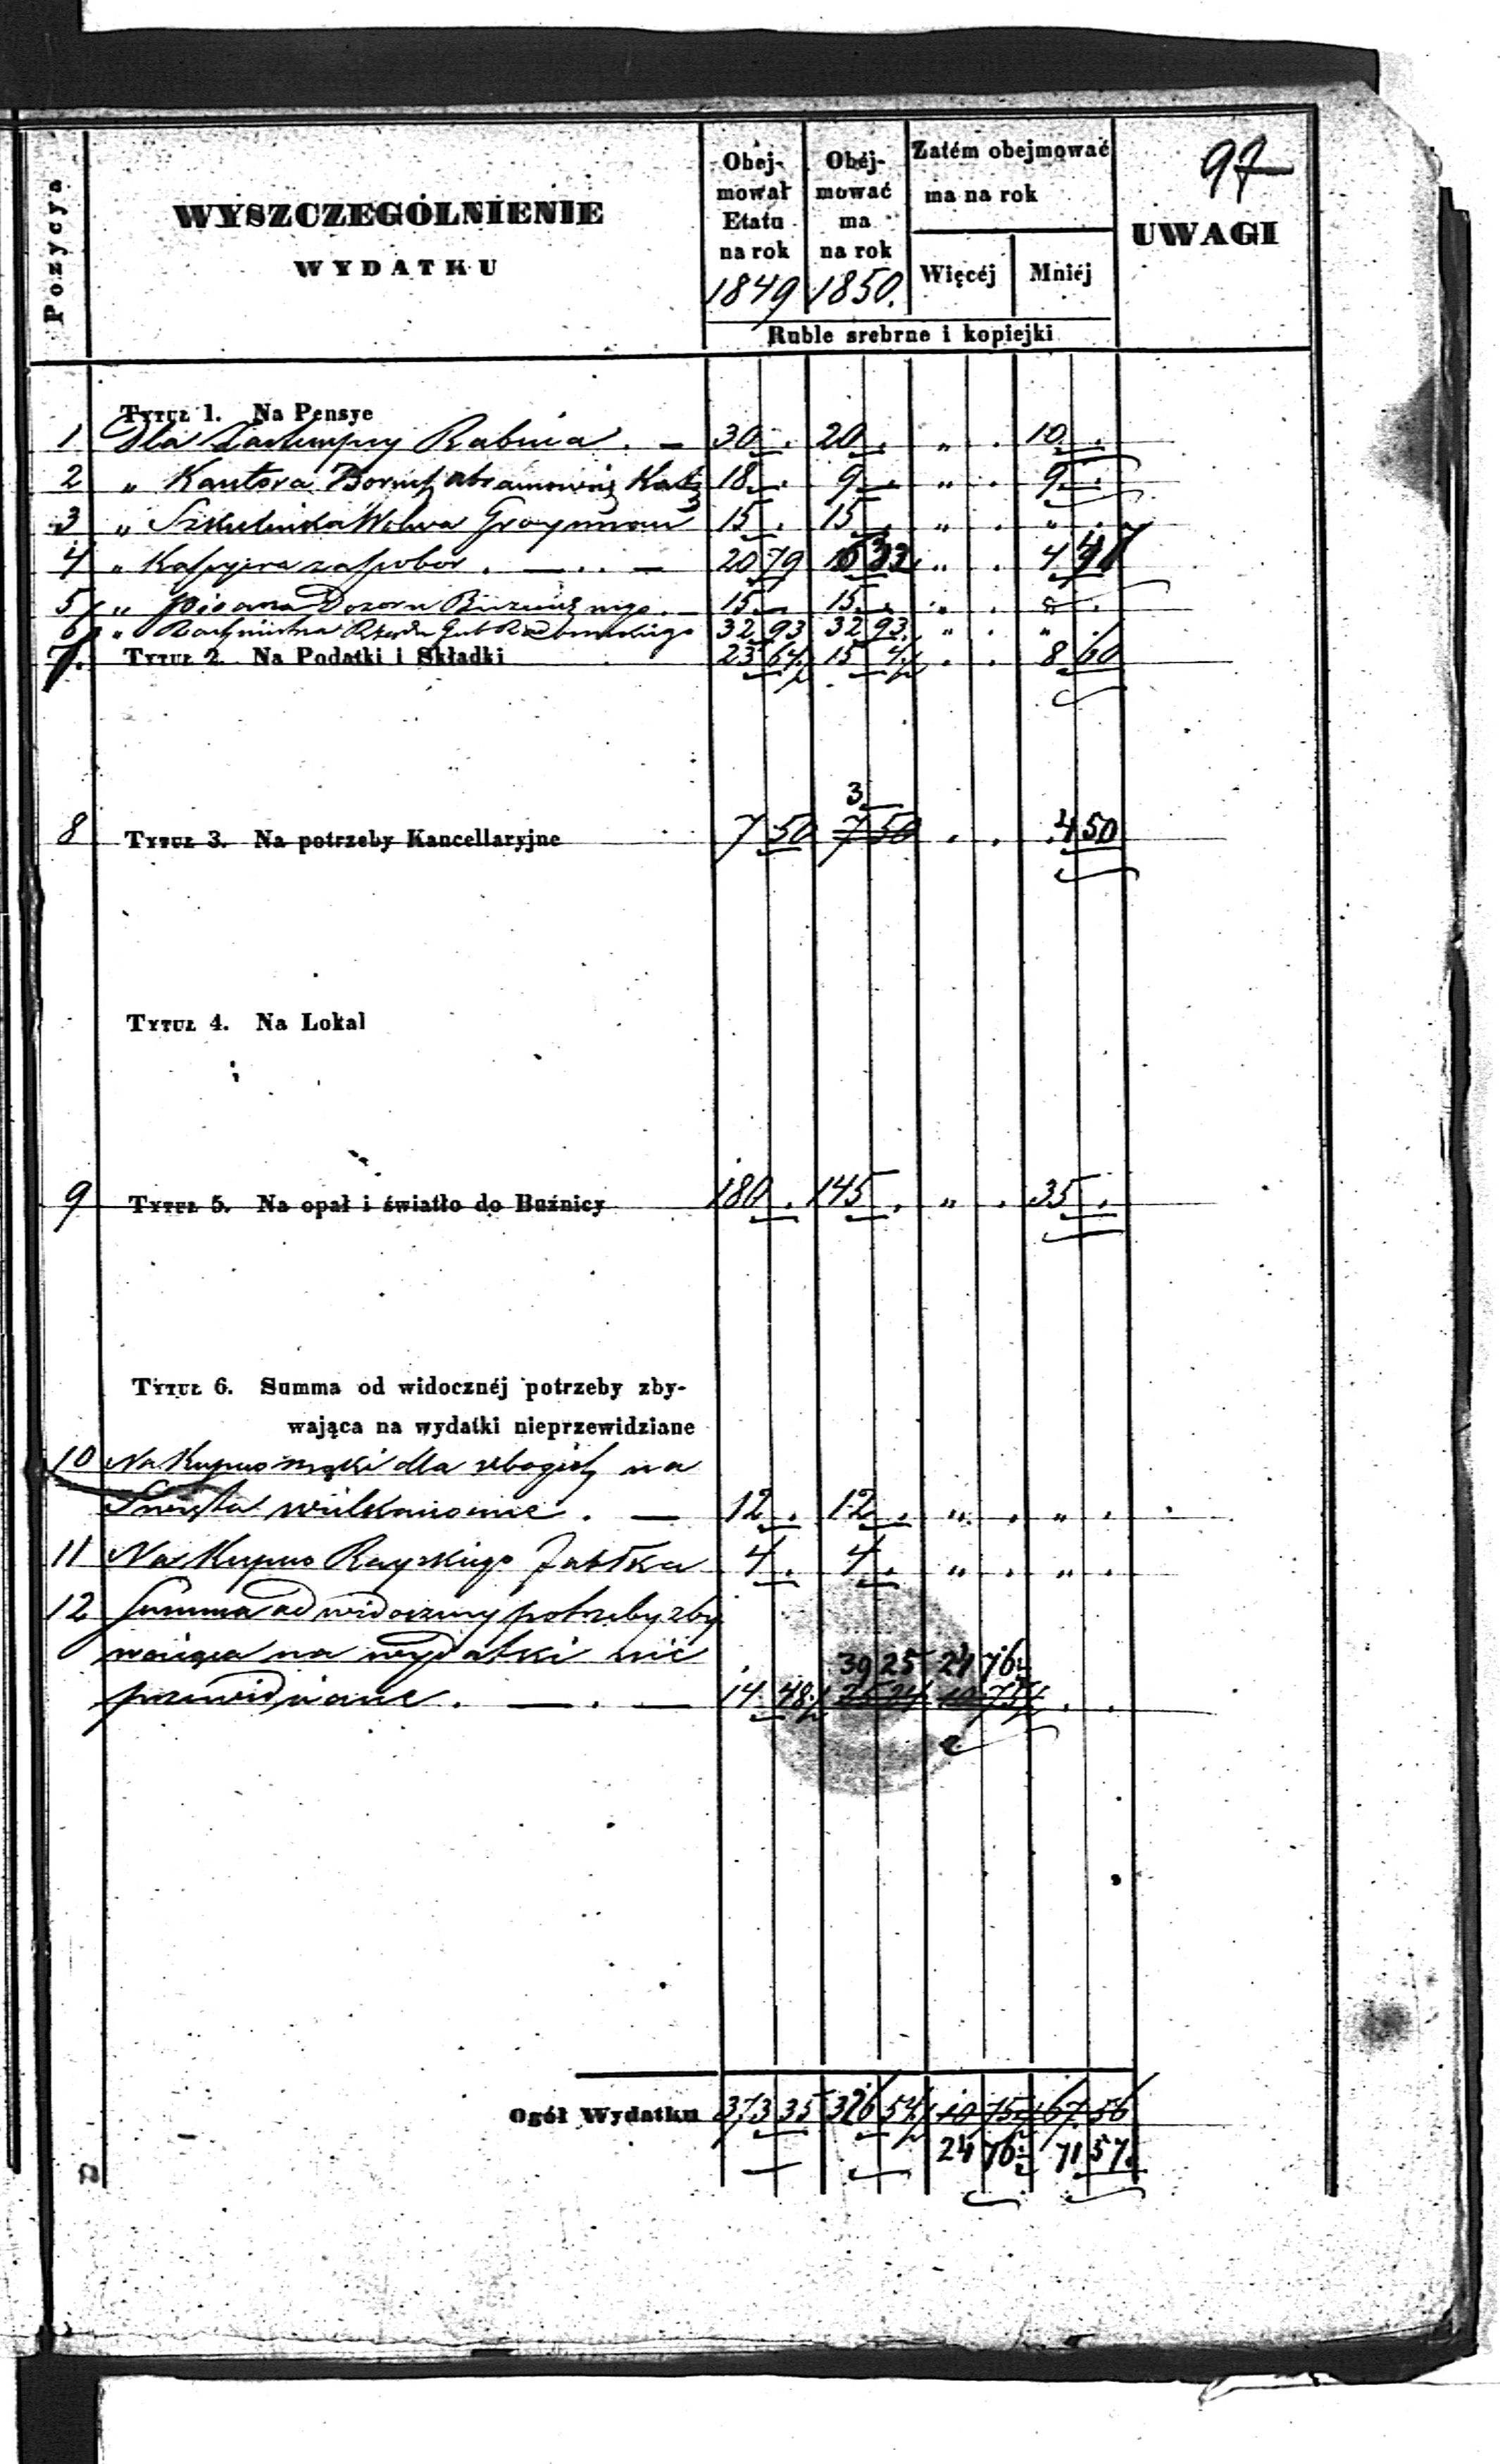 97
Pozycya
WYSZCZEGÓLNIENIE
WYDATKU
Obej-
mował
Etatu
na rok
1849
Obej-
mować
ma
na rok
1850.
Zatém obejmować
ma na rok
Więcéj Mniéj
UWAGI
Ruble srebrne i kopiejki
Tytuł 1. Na Pensye
1 Dla Zastempcy Rabina . — 30 . 20 . „ . 10 .
2 „ Kantora Boruch Abramowicz Katz 18 . 9 — „ . 9 .
3 „ Szkulnika Wolwa 15 . 15 . „ . „ .
4 „ Kassyera za pobor . — . . — 20 79 16 32 „ . 4 47
5 „ Pisarza Dozoru Bużnicznego . — 15 . 15 . „ . „ .
6 „ Rachmistrza Rządu Gub Radomskiego 32 93 32 93 „ . „ .
7. Tytuł 2. Na Podatki i Składki 23 64½ 15 4½ . . 8 60
3
8 Tytuł 3. Na potrzeby Kancellaryjne 7 50 7 50 . . 4 50
Tytuł 4. Na Lokal
9 Tytuł 5. Na opał i światło do Bużnicy 180 . 145 . „ . 35 .
Tytuł 6. Summa od widocznéj potrzeby zby-
wająca na wydatki nieprzewidziane
10 Na Kupno mąki dla ubogich na
Święta wielkanocne . — 12 . 12 . „ . „ .
11 Na Kupno Rayskiego Jabłka 4 . 4 . „ . „ .
12 Summa od widoczney potrzeby zby
waiąca na wydatki nie 39 25 24 76½
przewidziane . — . — 14 48½ 25 24 10 75½ . .
Ogół Wydatku 373 35 326 54½ 10 75½ 67 56
24 76½ 71 57.